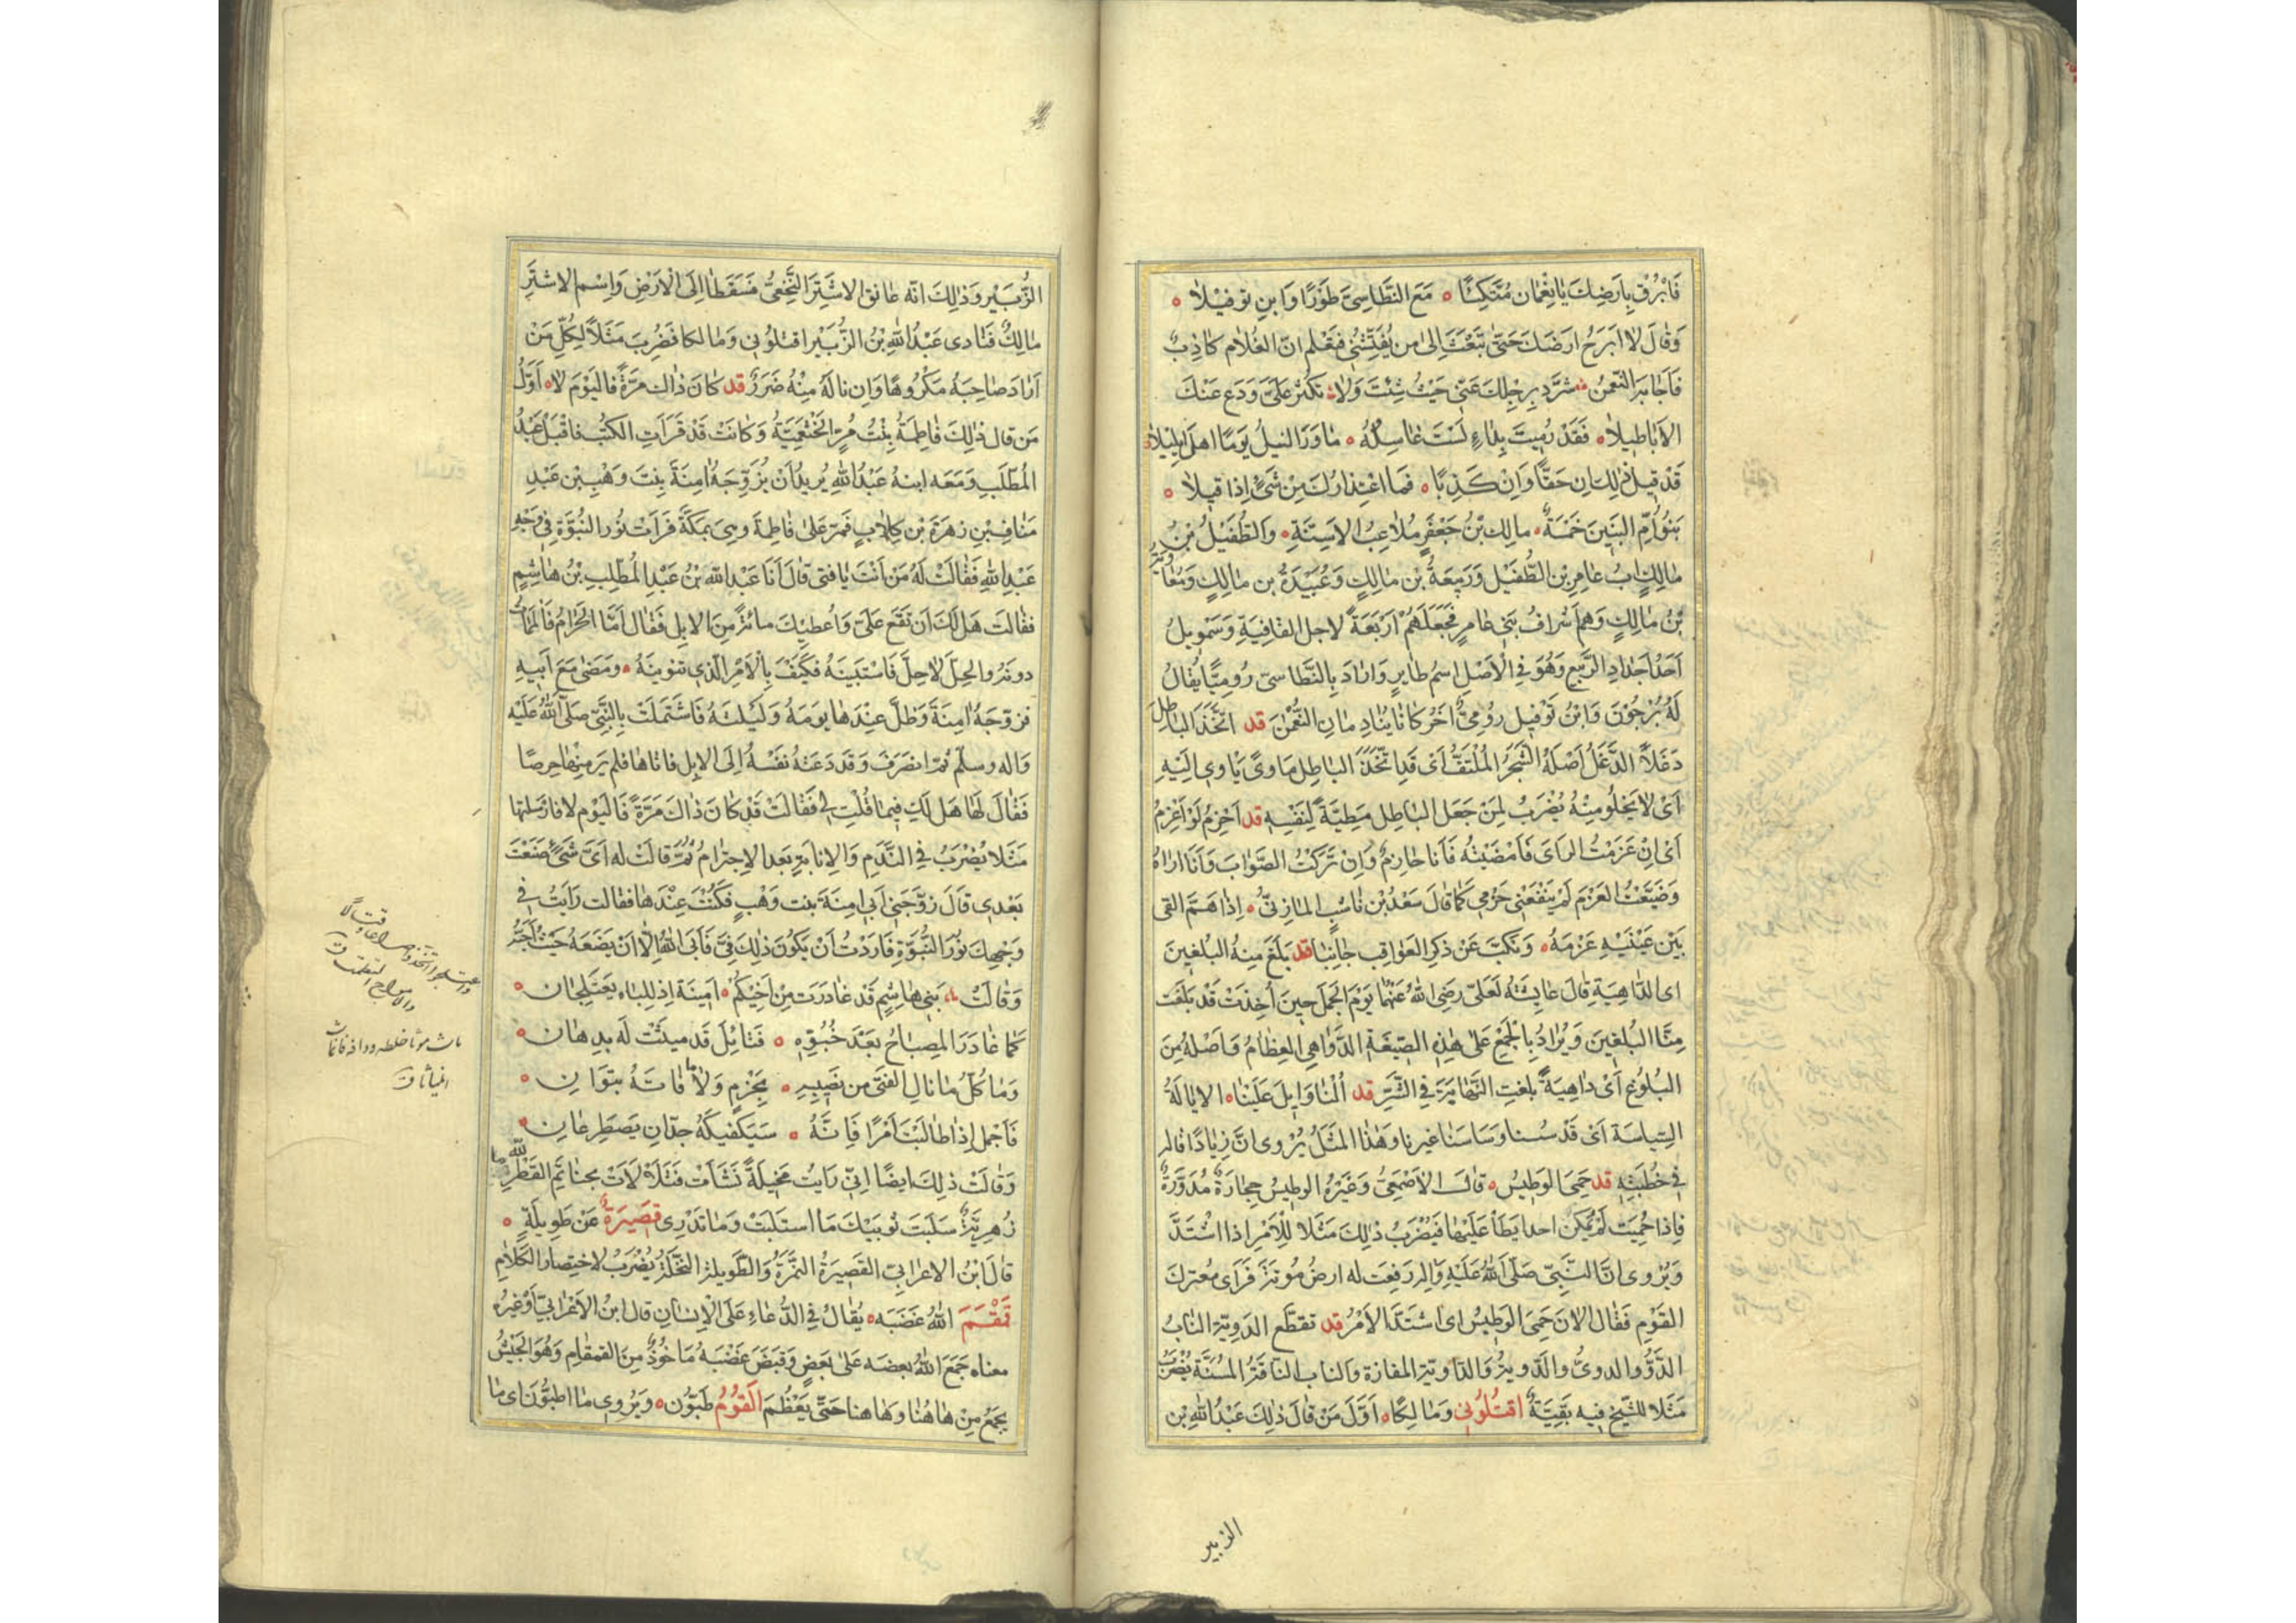 فَابْرُقْ بِاَرضِكَ يَا نِعْمَان مُتَّكِئًا ٥ مَعَ النَّطَاسِىِّ طَوْرًا وَابنِ تَوفيْلَا ٥
وَقَالَ لَا اَبرَحُ اَرضَكَ حَتّٰى تَبْعَثَ اِلىَّ من يُفَتِّشُنِى فتَعْلم انّ الغُلَام كَاذِبٌ
فَاَجَابَهُ النّعمٰنُ شَرِّد بِرحلِكَ عَنّى حَيْثُ شِئْتَ وَلا تكثر عَلَىَّ وَدَع عَنْكَ
الاَبَاطِيلا ٥ فَقَدْ رُمِيتَ بِدَاءٍ لَسْتَ غَاسِلَهُ ٥ مَا وَرَ النيلُ يَومًا اهلَ اِبليلا
قَدْ قيلَ ذٰلِكَ اِن حَقًّا وَاِنْ كَذِبًا ٥ فَمَا اعْتِذَارُكَ مِنْ شَىْءٍ اِذَا قيلا ٥
بَنُو اُمِّ البَنِينَ خَمْسَةٌ ٥ مالِك بْنُ جَعْفَرٍ مُلَاعِبُ الاَسِنَّةِ ٥ وَالطُفَيْلُ بْنُ
مَالِكٍ ابُ عَامِرِ بْنِ الطُّفَيْل وَرَبِيعَةُ بْن مَالِكٍ وَعُبَيْدَةُ بن مَالِكٍ وَمُعَاوِيَةُ
بْنُ مَالِكٍ وَهم اَشْرَافُ بَنِى عَامرٍ فَجَعَلَهُمْ اَرْبَعَةً لاجل القَافِيَةِ وَسَمَويلُ
اَحَدُ اَجْدَادِ الرَّبِيعِ وَهُوَ فِى الْاَصْلِ اسمُ طَايرٍ وَاَرَادَ بِالنَّطَاسِىّ رُومِيًّا يُقالُ
لَهُ سُرْجُونَ وَابْنُ تَوْفيل رُومِىٌّ اٰخَرُ كَانَا يُنَادِمَانِ النُّعْمٰنَ قد اتَّخَذَ البَاطِلَ
دَغَلًا الدَّغَلُ اَصْلُهُ الشَّجَرُ المُلْتَفُّ اَى قَد اتَّخَذَ البَاطِل مَاوىً يَاوِى اِلَيْهِ
اَىْ لَا يَخْلُو مِنْهُ يُضْرَبُ لِمَنْ جَعَل البَاطِل مَطِيَّةً لِنَفْسِهِ قد اَحْزِمُ لَوْ اَعْزِمُ
اَىْ اِنْ عَزَمْتُ الرَاىَ فَاَمْضَيْتُهُ فَاَنَا حَازِمٌ وَاِنْ تَرَكْتُ الصَّوَابَ وَاَنَا اَرَاهُ
وَضَيَّعْتُ العَزْمَ لَمْ يَنْفَعْنِى حَزْمِى كَمَا قَالَ سَعْدُ بْن نَاشِبٍ المَازِنِىُّ ٥ اِذَا هَمَّ القى
بَيْن عَيْنَيْهِ عَزْمَهُ ٥ وَنَكَّبَ عَنْ ذِكرِ العَوَاقِبِ جَانِبَا قد بَلَغَ مِنهُ البُلَغِينَ
اى الدَّاهِيَةِ قَالَ عَايِشَةُ لَعَلىّ رَضِىَ اللهُ عَنْهُمَا يَوْمَ الجَمَل حِينَ اُخِذَتْ قَدْ بَلَغَت
مِنَّا البُلَغِينَ وَيُرَادُ بِالْجَمْعِ عَلَى هٰذِهِ الصِّيغَةِ الدَّوَاهِى العِظَامُ وَاَصْلُهُ مِنَ
البُلُوغِ اَىْ دَاهِيَةٌ بلغتِ النّهَايَةَ فِى الشَّرِّ قد اُلْنَا وَاِيلَ عَلَيْنَا ٥ الايَالَةُ
السِّيَاسَة اَىْ قَدْ سُسْنا وَسَاسَنَا غيرنا وَهٰذَا المَثَلُ يُرْوى انّ زِيَادًا قاله
فِى خُطْبَتِهِ قد حَمِىَ الوَطِيسُ ٥ قَالَ الاَصْمَعِىُّ وَغَيْرُهُ الوطِيسُ حِجَارَةٌ مُدَوَّرَةٌ
فَاِذَا حُمِيَت لَمْ يُمكِن احدا يَطَأْ عَلَيْهَا فَيُضْرَبُ ذٰلِكَ مَثَلًا لِلْاَمْرِ اذا اشْتَدَّ
وَيُرْوى انّ النَّبِىّ صَلَّى اللهُ عَلَيْهِ وَاٰله رفِعَت له ارضُ مُوتَةَ فَرَاَى مُعترَك
القَوْمِ فَقَالَ الاٰنَ حَمِىَ الوَطِيسُ اى اشتَدَّ الاَمْرُ قد تقطَع الدوِيّة النَّابُ
الدَّوُّ والدوىُّ والدَّوِيّةُ وَالدَّاوِيّة المفازة والناب النَاقَةُ المُسِنَّة يُضْرَبُ
مَثَلًا للشّيخ فِيه بَقِيَّةٌ اقتُلُونِى وَمَالِكًا ٥ اَوَّلُ مَنْ قَالَ ذٰلِكَ عَبْدُ اللهِ بْن
الزبير
الزُّبَيْرِ وَذٰلِكَ انّه عَانق الاشْتَرَ النَّخَعِىَّ فَسَقَطَا اِلَى الْاَرْضِ وَاِسْم الاشْتَرِ
مَالِكٌ فَنَادى عَبْدُ اللهِ بْنُ الزُّبَيْر اقتلُونِى وَمَالكا فَضُرِبَ مَثَلًا لِكُلِّ مَنْ
اَرَادَ صَاحِبَهُ مَكْرُوهًا وَاِن نالَهُ مِنْهُ ضَرَرٌ قد كَانَ ذَاكَ مرّةً فَاليَوْمَ لَا ٥ اَوَّلُ
مَن قال ذٰلِكَ فَاطِمَةُ بِنْتُ مُرٍّ الخَثْعَمِيَّةُ وَكَانَتْ قَدْ قَرَاَتِ الكُتُبَ فاقْبَل عَبْدُ
المُطَّلَبِ وَمَعَه ابنهُ عَبْدُ اللهِ يُرِيدُ اَنْ يُزَوِّجَهُ اٰمِنَةَ بِنتَ وَهْبِ بْن عَبْدِ
مَنَافِ بْنِ زهرَةَ بْنِ كِلَابٍ فَمَرَّ عَلَى فَاطِمَةَ وَهِىَ بِمَكَّةَ فَرَاَتْ نُورَ النُّبُوَّةِ فِى وَجْهِ
عَبْدِ اللهِ فَقَالَتْ لَهُ مَنْ اَنْتَ يَا فتى قالَ اَنَا عَبْدُ اللهِ بْنُ عَبْدِ المُطَّلِبِ بْنُ هَاشِمٍ
فقَالت هَل لَكَ اَن تَقَع عَلَىَّ وَاُعطِيكَ مائةً مِنَ الابِل فَقَال اَمَّا الحَرَامُ فَالمَمَاتُ
دونهُ والحِلّ لَا حِلَّ فَاسْتَبِينَهُ فكَيْفَ بِالْاَمْرِ الّذِى تنوينهُ ٥ وَمَضٰى مَعَ اَبِيهِ
فزوّجَهُ اٰمِنَةَ وَظَلَّ عِنْدهَا يَومَهُ وَلَيْلَتَهُ فَاشْتَمَلَتْ بِالنَّبِىِّ صَلَّى اللهُ عَلَيْهِ
وَاٰله وسلّم ثُمّ انصَرَفَ وَقَد دَعَتْهُ نَفْسُهُ اِلَى الابِل فاتَاهَا فلم يَرَ مِنْهَا حِرصًا
فَقَالَ لَهَا هَل لَكِ فِيمَا قُلْتِ لِى فَقَالَتْ قَدْ كَانَ ذَاكَ مَرّةً فَاليَوْم لا فارسَلتها
مَثَلا يُضْرَبُ فِى النَّدَمِ وَالاِنابَةِ بَعدَ الاِجتِرَامِ ثُمَّ قَالَتْ لَه اَىَّ شَىْءٍ صَنَعْتَ
بَعْدِى قَالَ زَوَّجَنِى اَبِى اٰمِنَةَ بنت وَهْبٍ فَكُنْتُ عِنْدَهَا فقالت رَاَيْتُ فِى
وَجْهِكَ نُورَ النُّبُوَّةِ فَاَرَدْتُ اَنْ يَكُونَ ذٰلِكَ فِىَّ فَاَبَى اللهُ اِلَّا اَنْ يَضَعَهُ حَيْثُ اَحَبَّ
وَقَالَتْ بَنِى هَاشِمٍ قَدْ غَادَرَت مِنْ اَخِيكُمْ ٥ اَمِينَة اِذ لِلبَاه يَعْتَلِجَان ٥
كَمَا غَادَرَ المِصبَاحُ بَعْدَ خُبُوِّهِ ٥ فَتَائِلَ قَد ميثَتْ لَه بدِهَان ٥
وَمَا كُلّ مَا نال الفتَى من نَصِيبِهِ ٥ بِحَزْمٍ وَلَا مَا فَاتَهُ بتوَانِ ٥
فَاَجْمِل اِذا طَالَبْتَ اَمْرًا فَاِنَّهُ ٥ سَيَكفِيكَهُ جدّانِ يَصطَرِعَانِ ٥
وَقَالَتْ ذٰلِكَ ايضًا اِنِّى رَايت مَخِيلَةً نَشَأَت فَتَلَأْلَاَتْ بحنَاتِم القَطْرِ لله ما
زُهرِيّةٌ سَلَبَت ثوبَيكَ مَا استَلَبَتْ وَمَا تَدْرِى قَصِيرَةٌ عَنْ طَوِيلَةٍ ٥
قَالَ ابْنُ الاعرَابِىّ القَصِيرَةُ التَّمْرَةُ وَالطَّوِيلة النَّخْلَةُ يُضْرَبُ لاختِصَار الكَلَامِ
قَمْقَمَ اللهُ عَصَبَه ٥ يُقَالُ فِى الدُّعَاءِ عَلَى الْاِنْسَانِ قالَ ابنُ الاَعْرَابِىّ اَوْ غيرُه
معناه جَمَعَ اللهُ بعضَه عَلٰى بَعضٍ وَقبَضَ عَصَبَهُ مَاخُوذٌ مِنَ القمقَامِ وَهُوَ الجَيْشُ
يجمَعُ مِنْ هَا هُنَا وَهَا هنا حَتّٰى يَعْظُمَ القَوْمُ طَبّون ٥ وَيُروى ما اطبّونَ اى مَا